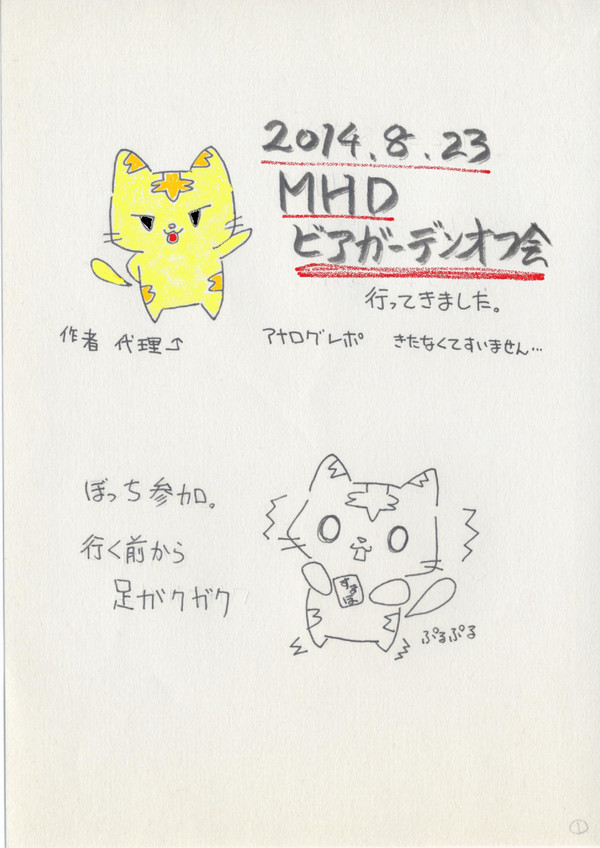 2014.8.23
MHD
ビアガーデンオフ会
行ってきました。
作者 代理⤴
アナログレポ きたなくてすいません…
ぼっち参加。
行く前から
足がクガク
するほ
ぷるぷる
①